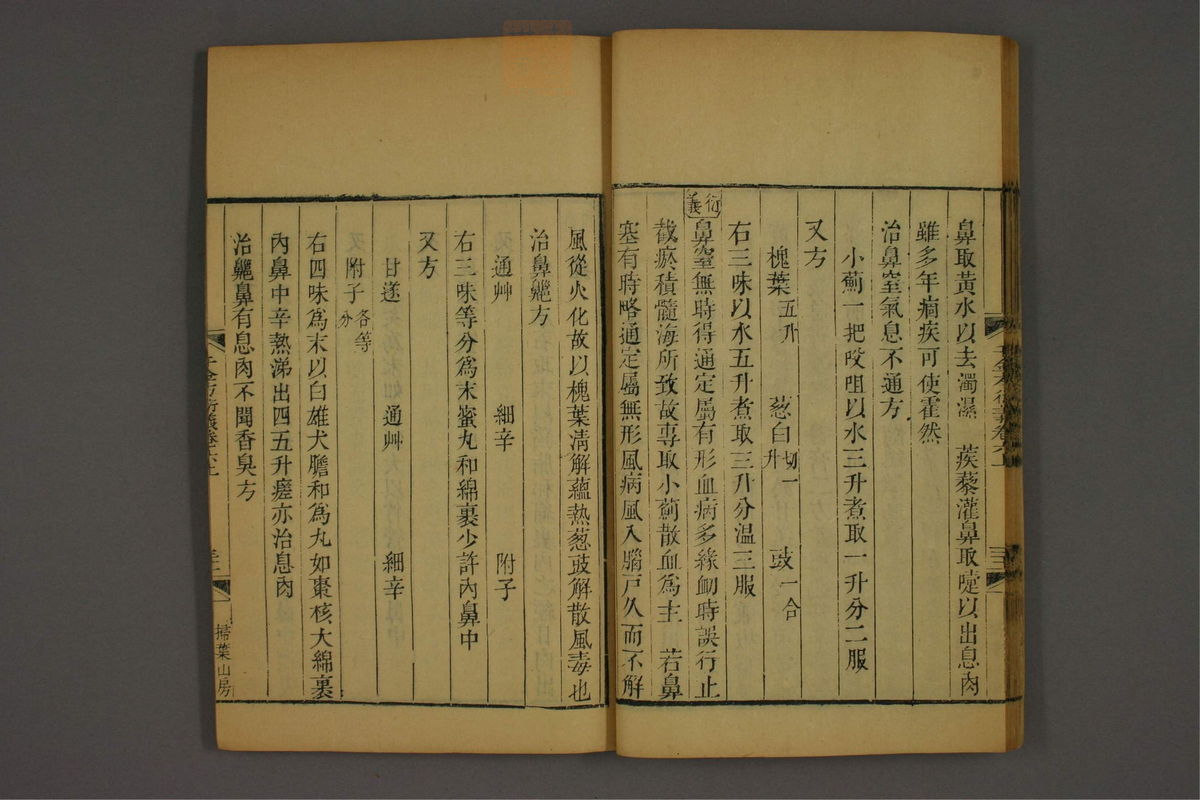 鼻取黃水以去濁濕　蒺藜灌鼻取嚏以出息肉
雖多年痼疾可使霍然
治鼻窒氣息不通方
小薊一把㕮咀以水三升煮取一升分二服
又方
槐葉五升　葱白切一升　豉一合
右三味以水五升煮取三升分溫三服
衍義
鼻窒無時得通定屬有形血病多緣衄時誤行止
截瘀積髓海所致故專取小薊散血爲主　若鼻
塞有時略通定屬無形風病風入腦戸久而不解
風從火化故以槐葉清解蘊熱葱豉解散風毒也
治鼻齆方
通艸　細辛　附子
右三味等分爲末蜜丸和綿裹少許內鼻中
又方
甘遂　通艸　細辛
附子各等分
右四味爲末以白雄犬膽和爲丸如棗核大綿裹
內鼻中辛熱涕出四五升瘥亦治息肉
治齆鼻有息肉不聞香臭方
千金方衍義卷六上
掃葉山房